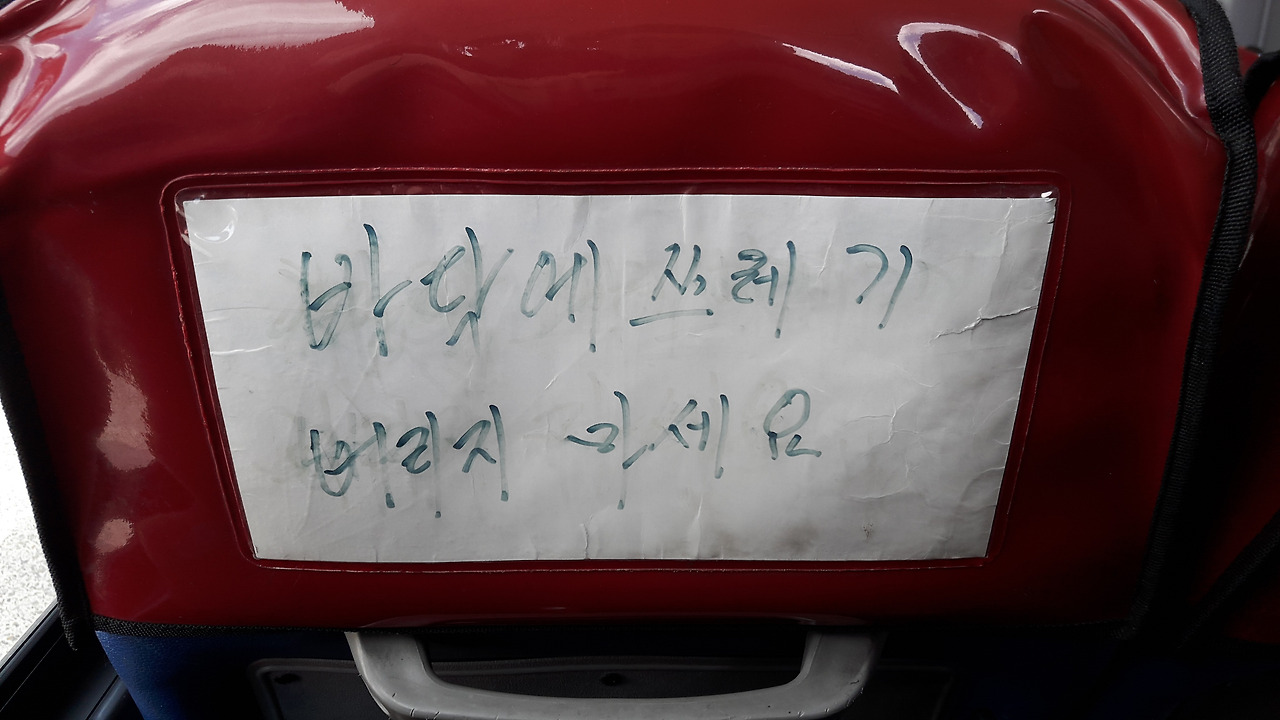 바닥에 쓰레기
버리지 마세요